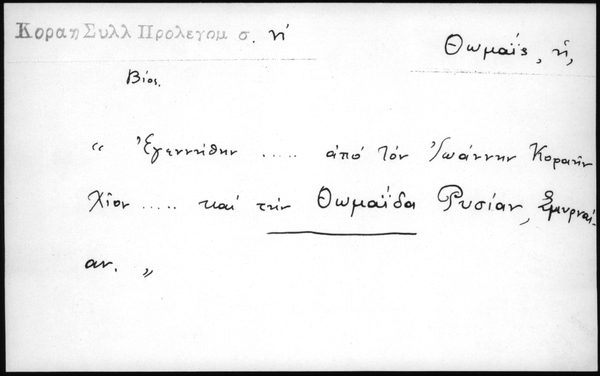 Κοραη Συλλ Προλεγομ σ. ηʹ
Θωμαΐς, ἡ,
Βίος.
“ Ἐγεννήθην ..... ἀπό τόν Ἰωάννην Κοραῆν
Χῖον ..... καί τήν Θωμαΐδα Ρυσίαν, Σμυρναί-
αν. „